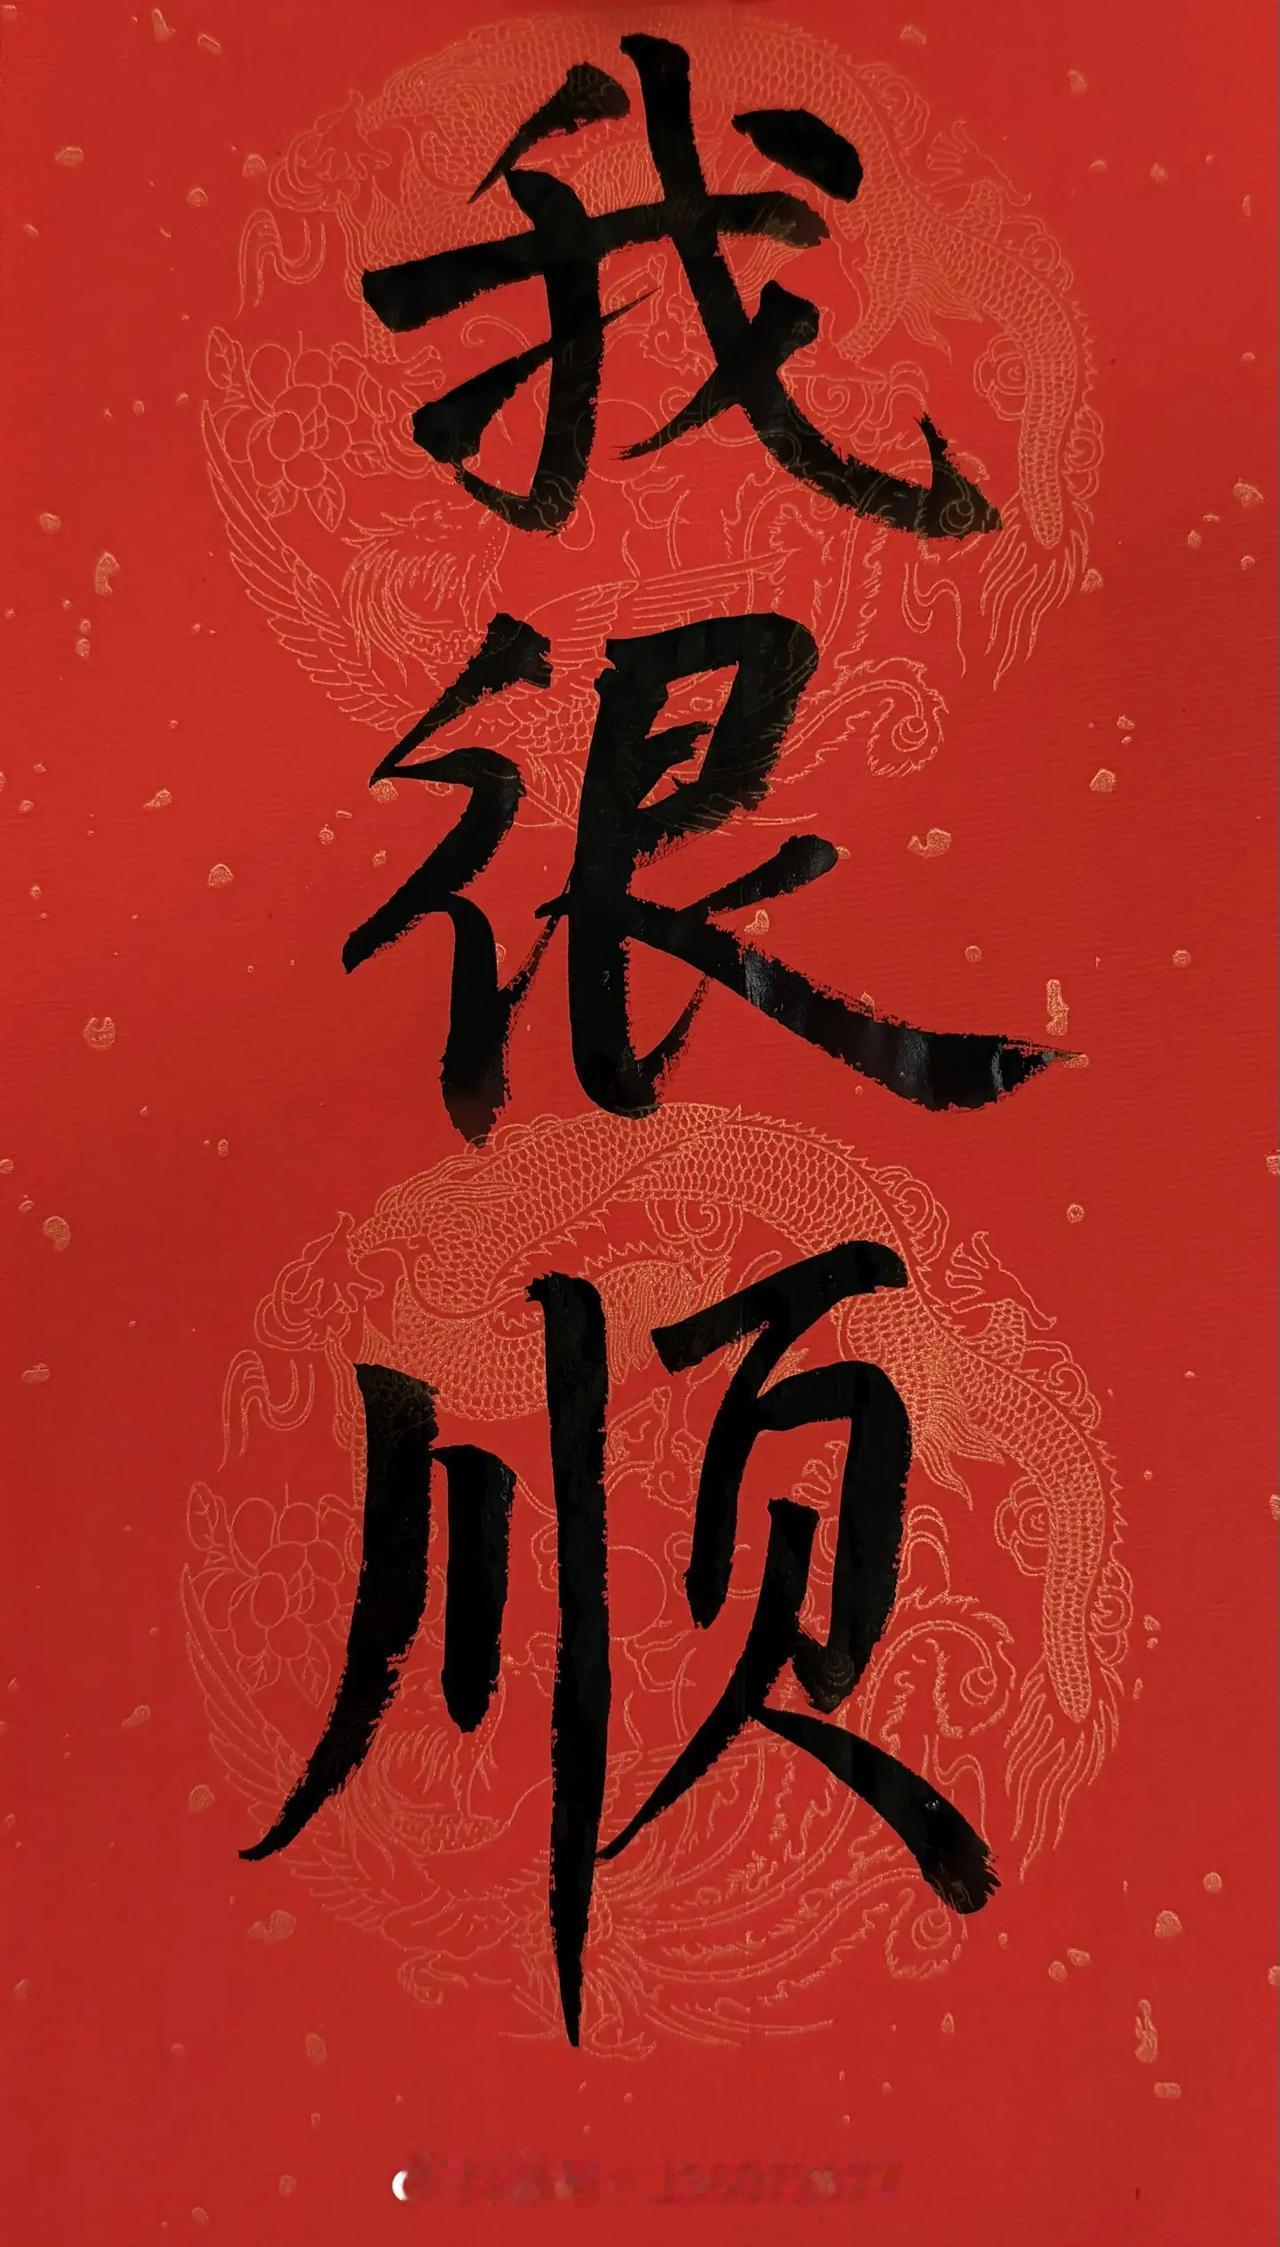 我很顺